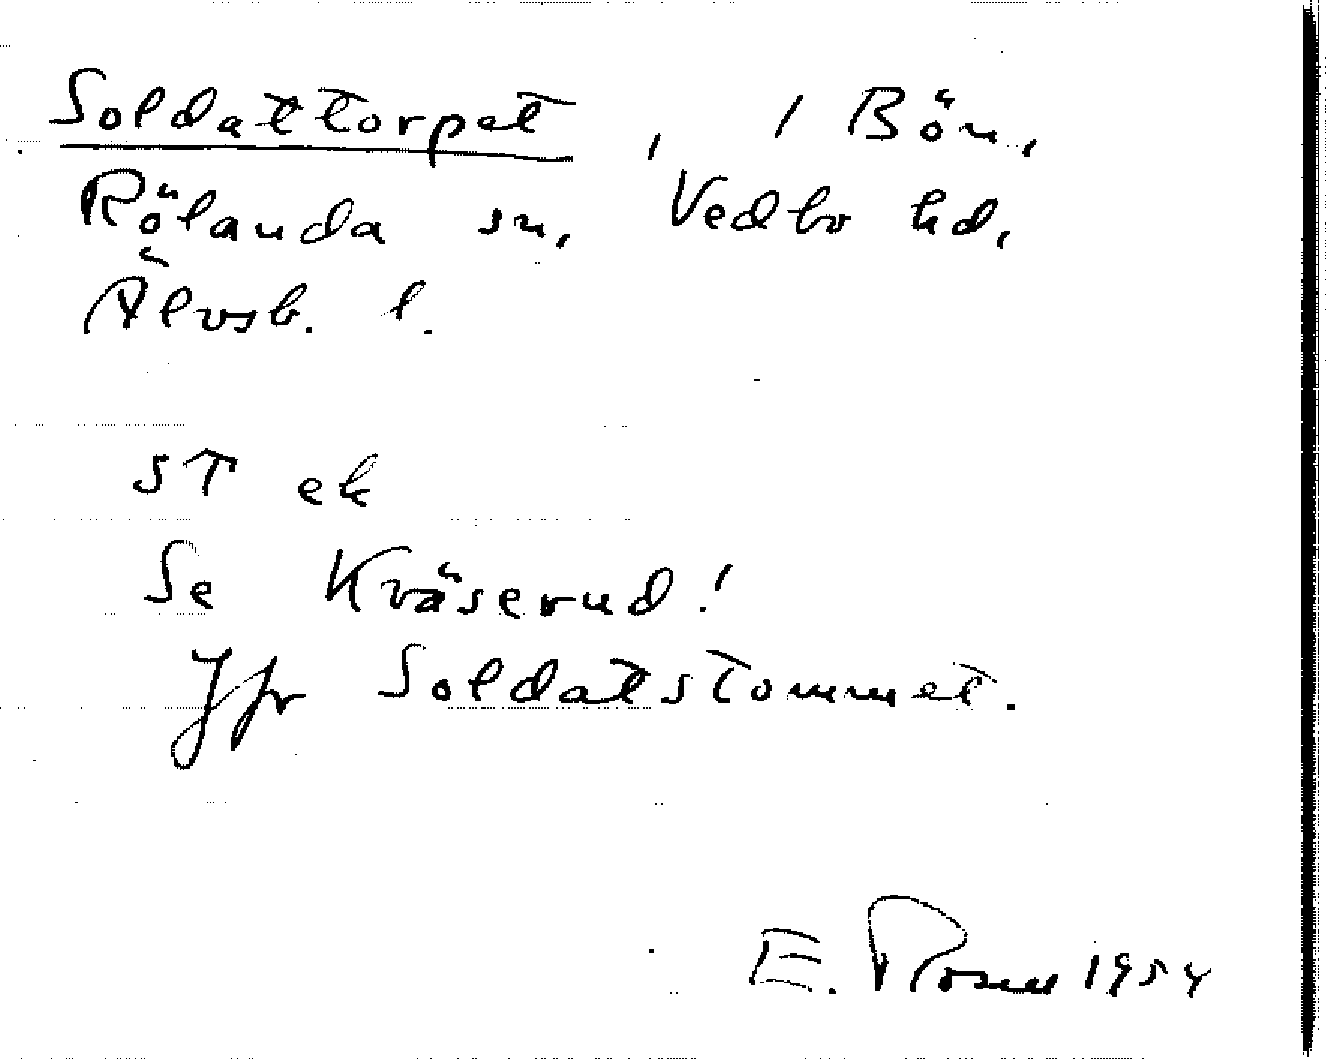 Soldattorpet, / Bön,
Rölanda sn, Vedbo hd,
Älvsb. l.
ST ek
Se Kväserud!
Jfr Soldatstommet.
E. Rosell 1954